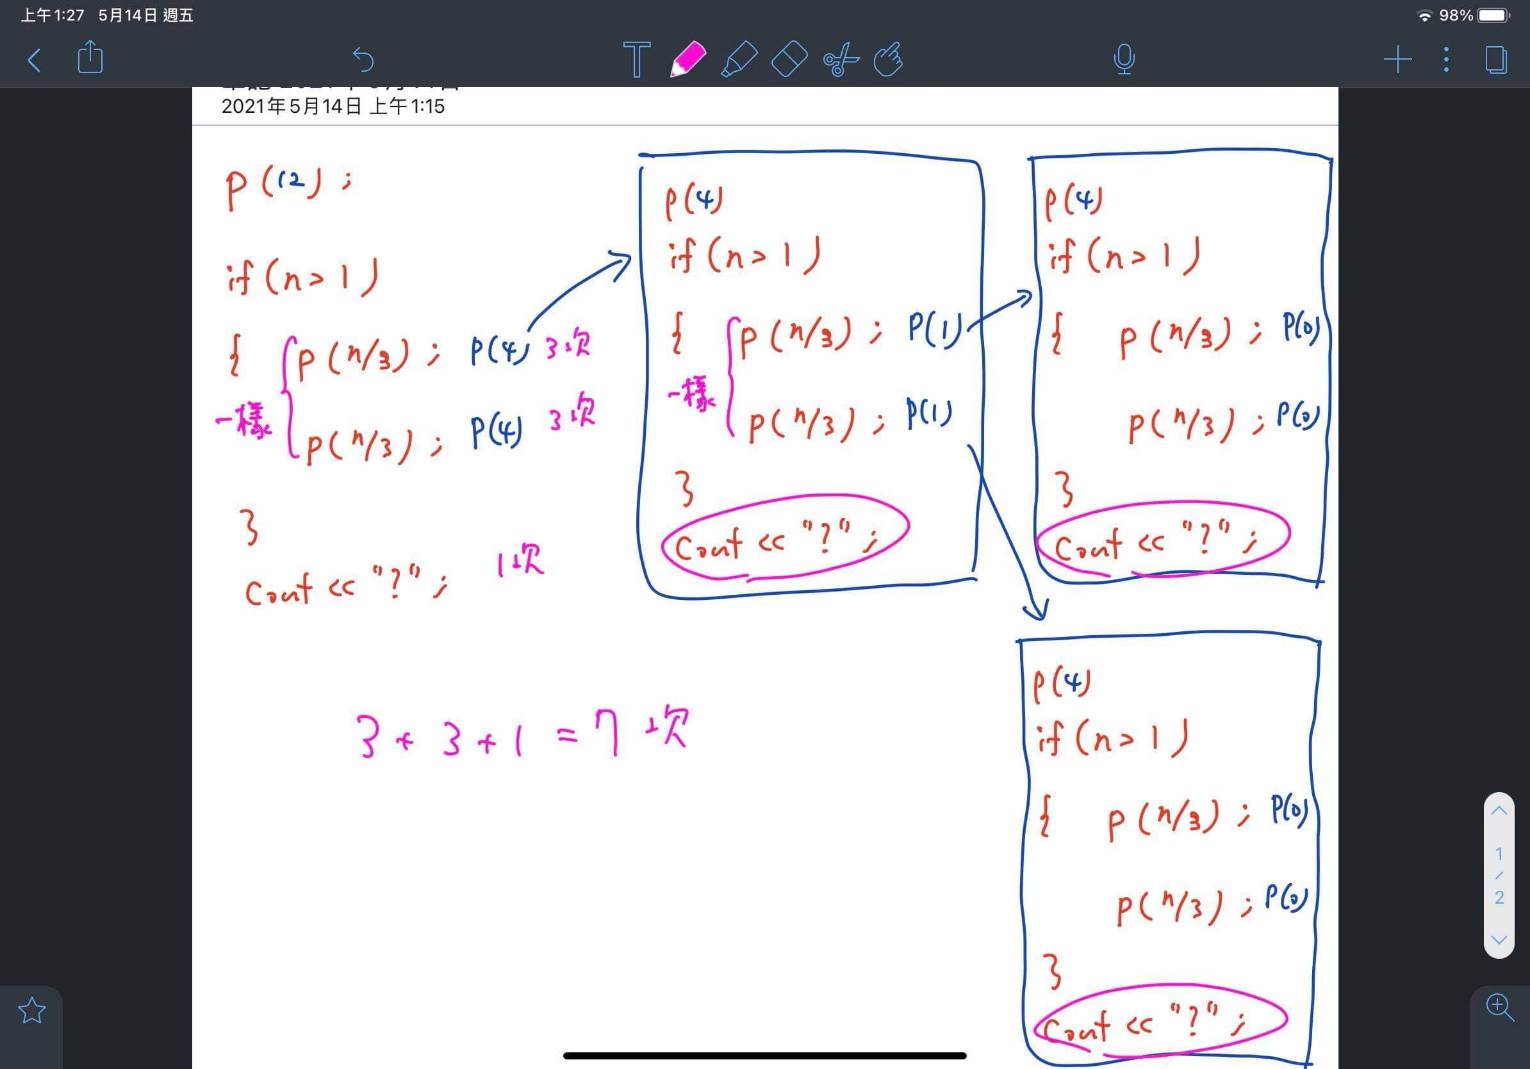 上午1:27 5月14日 週五
98%
2021年5月14日 上午1:15
P(12);
if(n>1)
{ P(n/3); P(4) 3次
一樣
P(n/3); P(4) 3次
}
Cout << "?"; 1次
3+3+1=7次
P(4)
if(n>1)
{ P(n/3); P(1)
一樣
P(n/3); P(1)
}
Cout << "?";
P(4)
if(n>1)
{ P(n/3); P(0)
P(n/3); P(0)
}
Cout << "?";
P(4)
if(n>1)
{ P(n/3); P(0)
P(n/3); P(0)
}
Cout << "?";
1
/
2